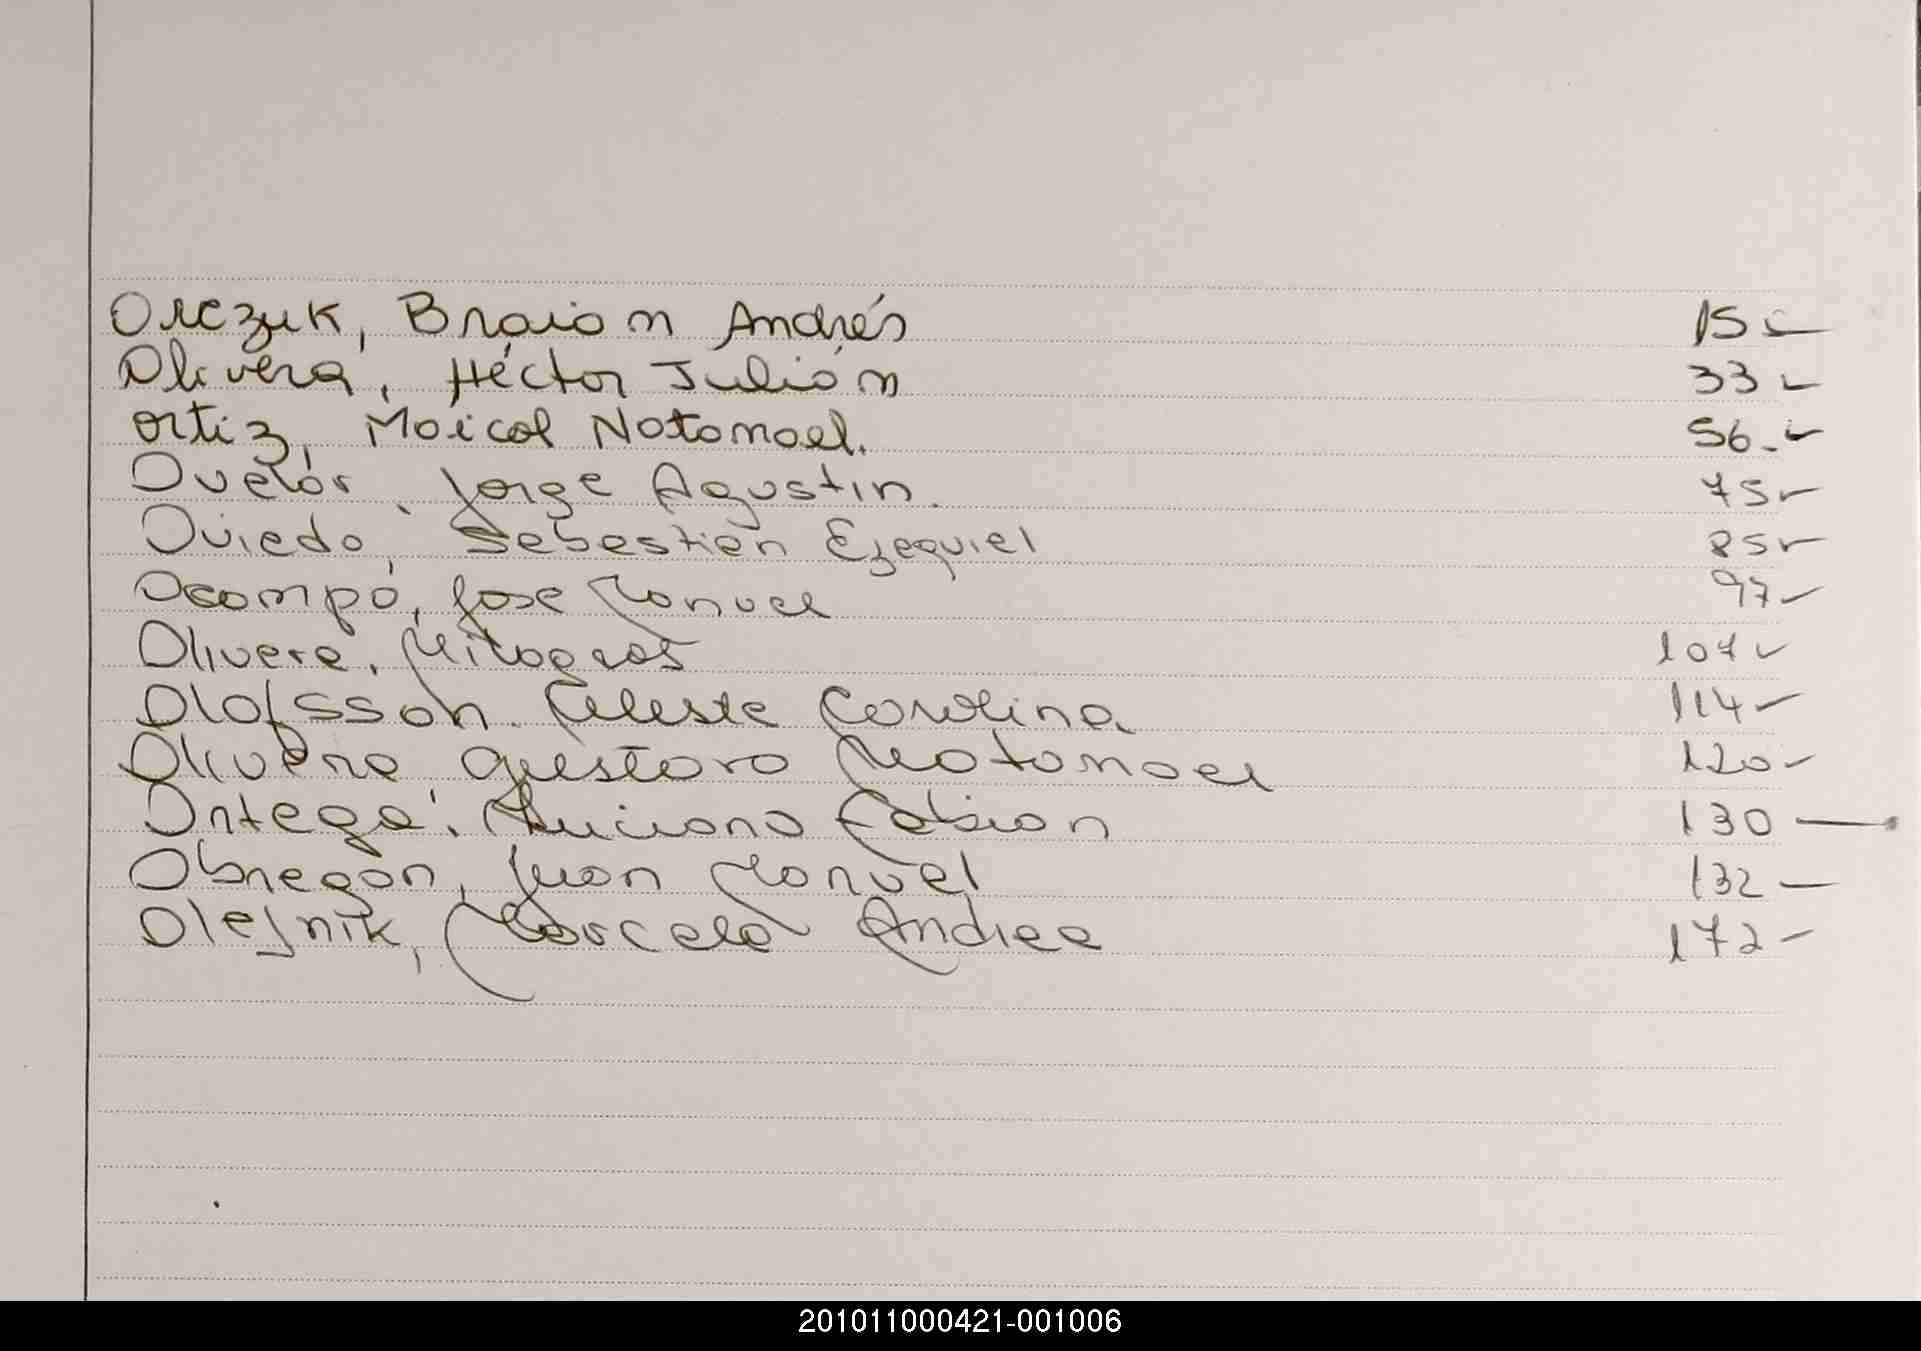 Olczuk, Braian Andrés 15
Olivera, Héctor Julián 33
Ortiz, Maicol Natanael. 56.
Ovelar, Jorge Agustin. 75
Oviedo, Sebastián Ezequiel 85
Ocampo, Jose Manuel 97
Olivera, Milagros 107
Olofsson. Celeste Carolina 114
Olivera Gustavo Natanael 120
Ortega. Luciano Fabian 130
Obregon, Juan Manuel 132
Olejnik, Marcela Andrea 172
201011000421-001006